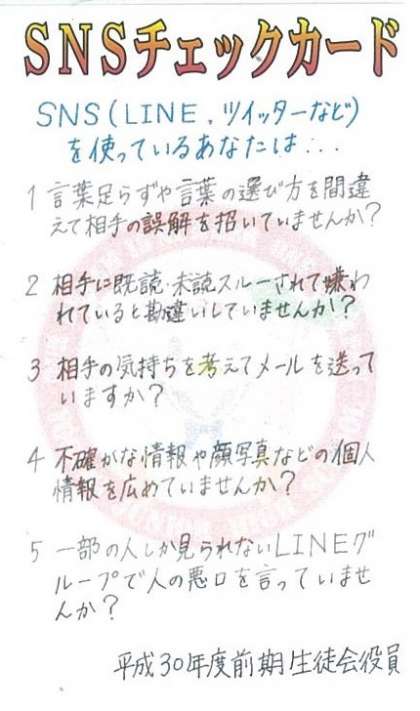 SNSチェックカード
SNS(LINE,ツイッターなど)
を使っているあなたは...
1 言葉足らずや言葉の選び方を間違
えて相手の誤解を招いていませんか?
2 相手に既読・未読スルーされて嫌わ
れていると勘違いしていませんか?
3 相手の気持ちを考えてメールを送って
いますか?
4 不確かな情報や顔写真などの個人
情報を広めていませんか?
5 一部の人しか見られないLINEグ
ループで人の悪口を言っていませ
んか?
平成30年度前期生徒会役員